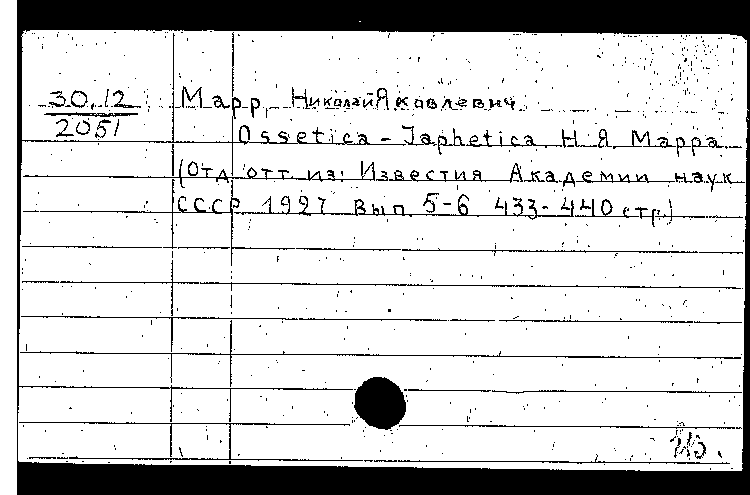 30.12
2051
Марр, Николай Яковлевич.
Ossetica - Japhetica Н. Я. Марра
(Отд отт из: Известия Академии наук
СССР 1927 Вып. 5-6 433-440 стр.)